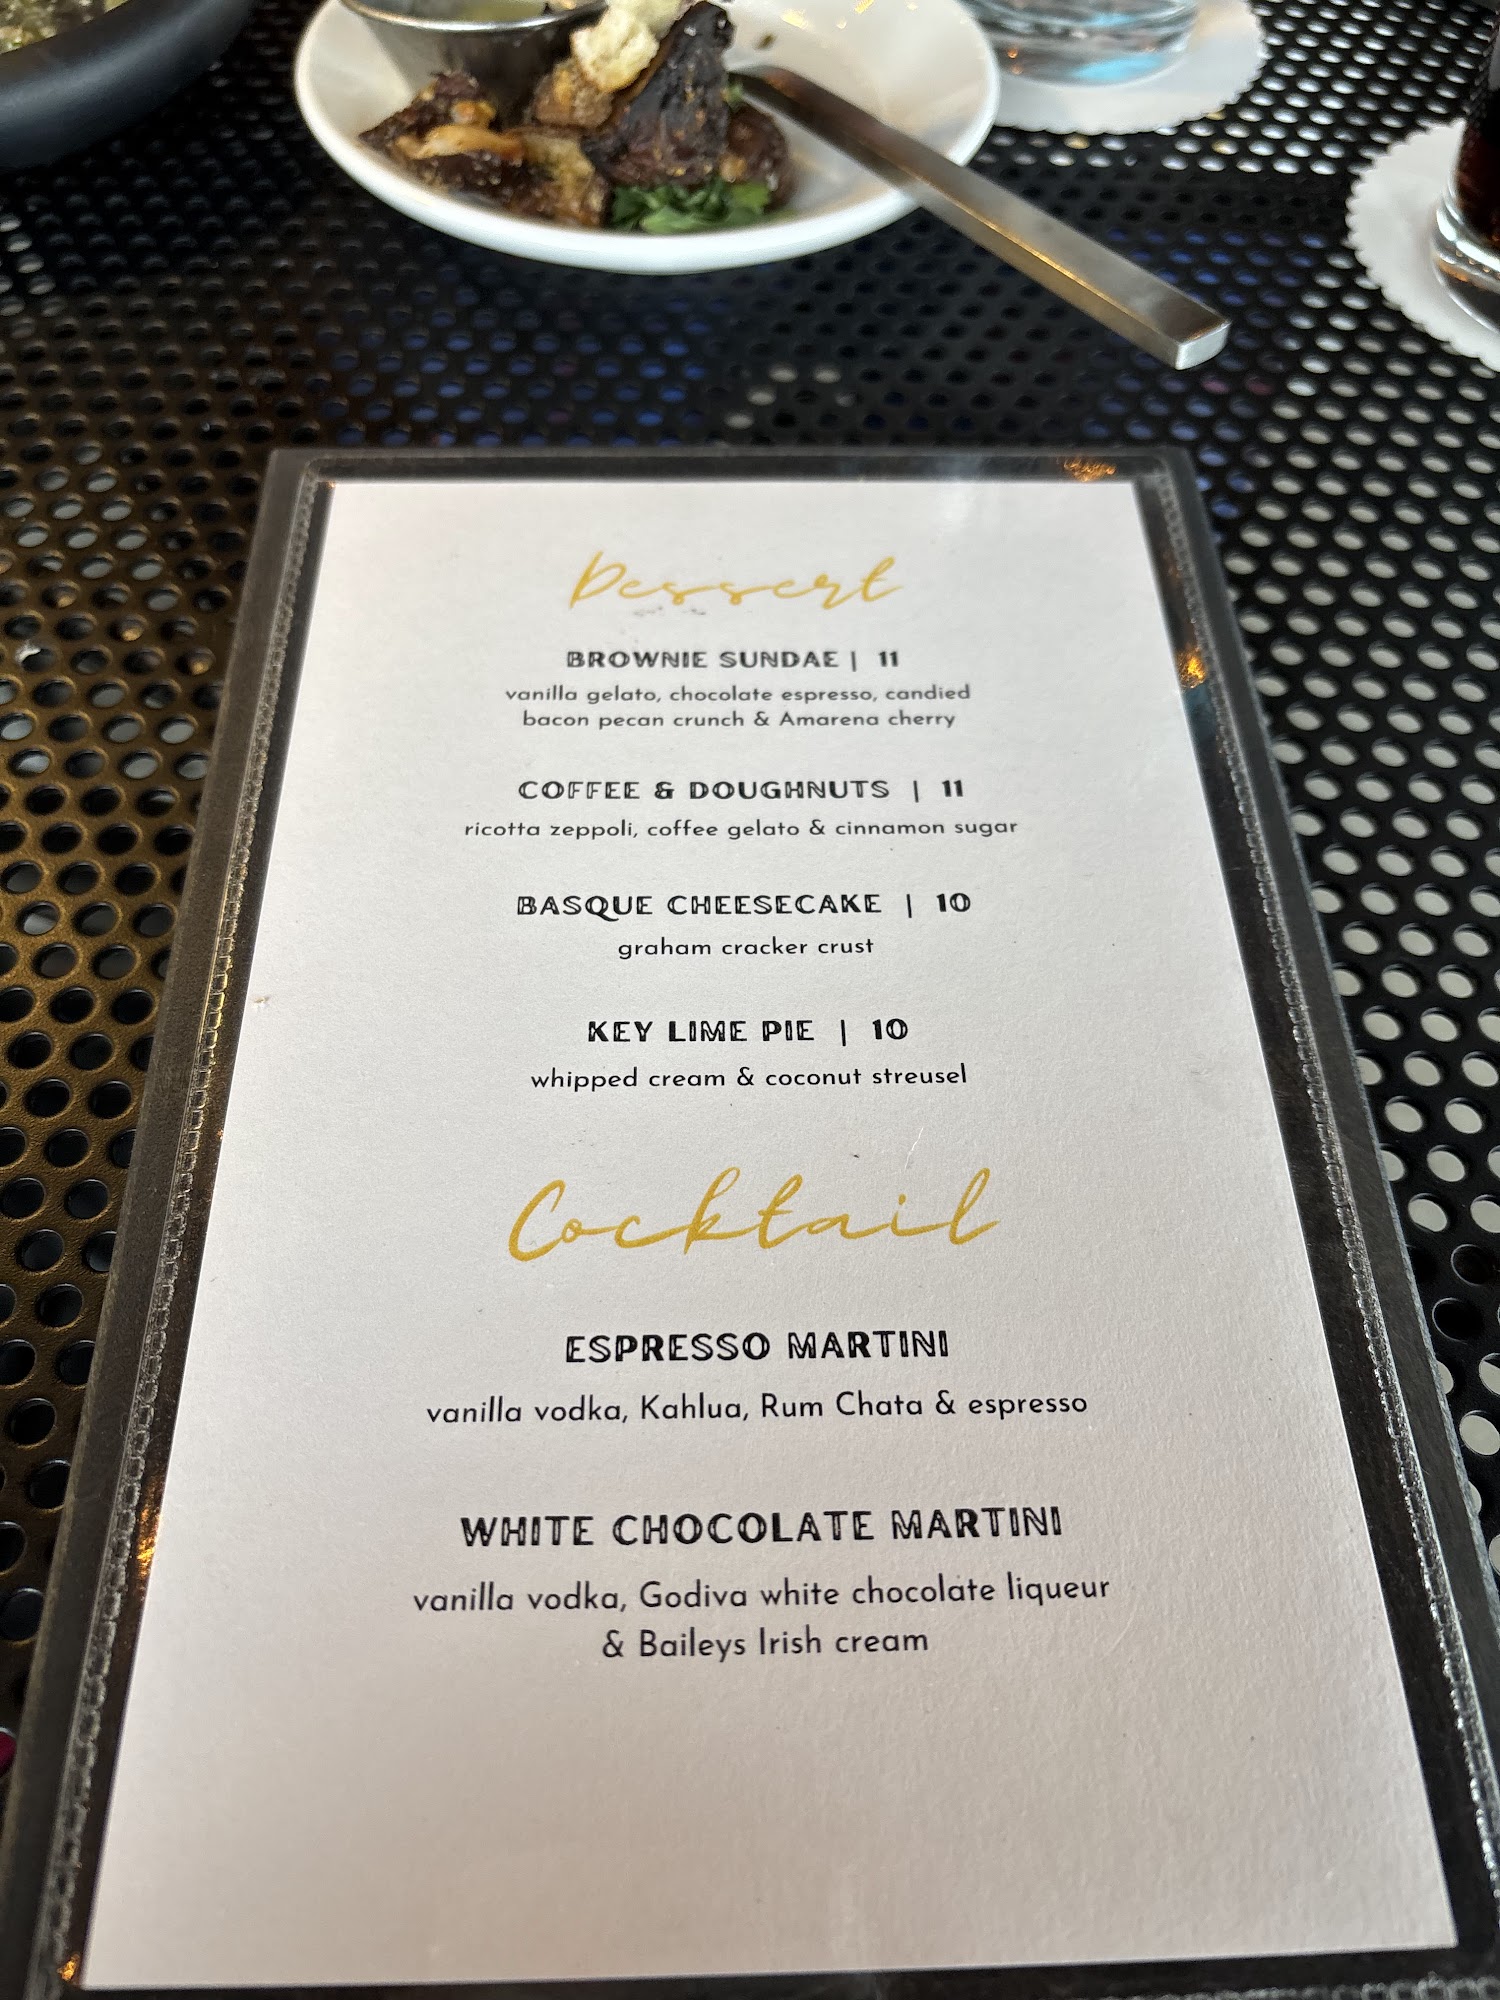 Dessert
BROWNIE SUNDAE | 11
vanilla gelato, chocolate espresso, candied
bacon pecan crunch & Amarena cherry
COFFEE & DOUGHNUTS | 11
ricotta zeppoli, coffee gelato & cinnamon sugar
BASQUE CHEESECAKE | 10
graham cracker crust
KEY LIME PIE | 10
whipped cream & coconut streusel
Cocktail
ESPRESSO MARTINI
vanilla vodka, Kahlua, Rum Chata & espresso
WHITE CHOCOLATE MARTINI
vanilla vodka, Godiva white chocolate liqueur
& Baileys Irish cream